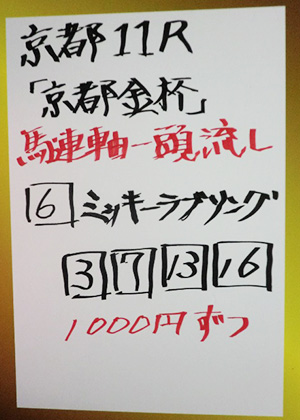 京都11R
「京都金杯」
馬連軸一頭流し
6 ミッキーラブソング
3 7 13 16
1000円ずつ